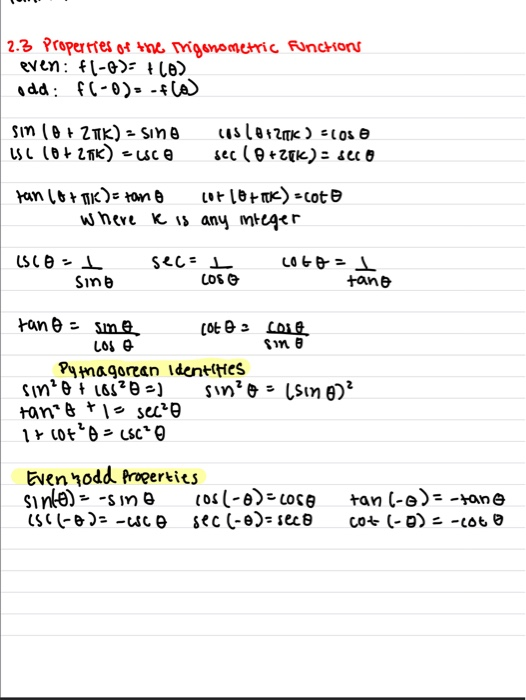 2.3 Properties of the Trigonometric Functions
even: f(-θ)= f(θ)
odd: f(-θ)= -f(θ)
sin (θ + 2πK) = sin θ cos (θ+2πK) = cos θ
csc (θ + 2πK) = csc θ sec (θ+2πK) = sec θ
tan (θ + πK) = tan θ cot (θ+πK) = cot θ
where K is any integer
csc θ = 1/sin θ sec = 1/cos θ cot θ = 1/tan θ
tan θ = sin θ/cos θ cot θ = cos θ/sin θ
Pythagorean Identities
sin² θ + cos² θ = 1 sin² θ = (sin θ)²
tan² θ + 1 = sec² θ
1 + cot² θ = csc² θ
Even & odd Properties
sin(-θ) = -sin θ cos (-θ) = cos θ tan (-θ) = -tan θ
csc (-θ) = -csc θ sec (-θ) = sec θ cot (-θ) = -cot θ